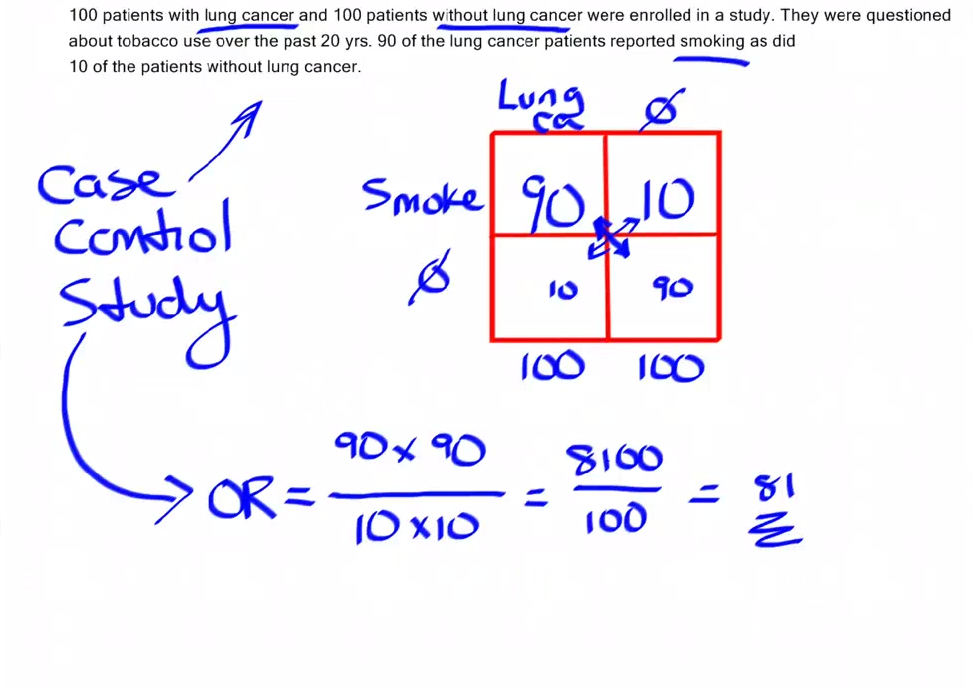 100 patients with lung cancer and 100 patients without lung cancer were enrolled in a study. They were questioned
about tobacco use over the past 20 yrs. 90 of the lung cancer patients reported smoking as did
10 of the patients without lung cancer.
Lung
ca Ø
Case
Control
Study
Smoke 90 10
Ø 10 90
100 100
90 x 90 8100
OR = = = 81
10 x 10 100